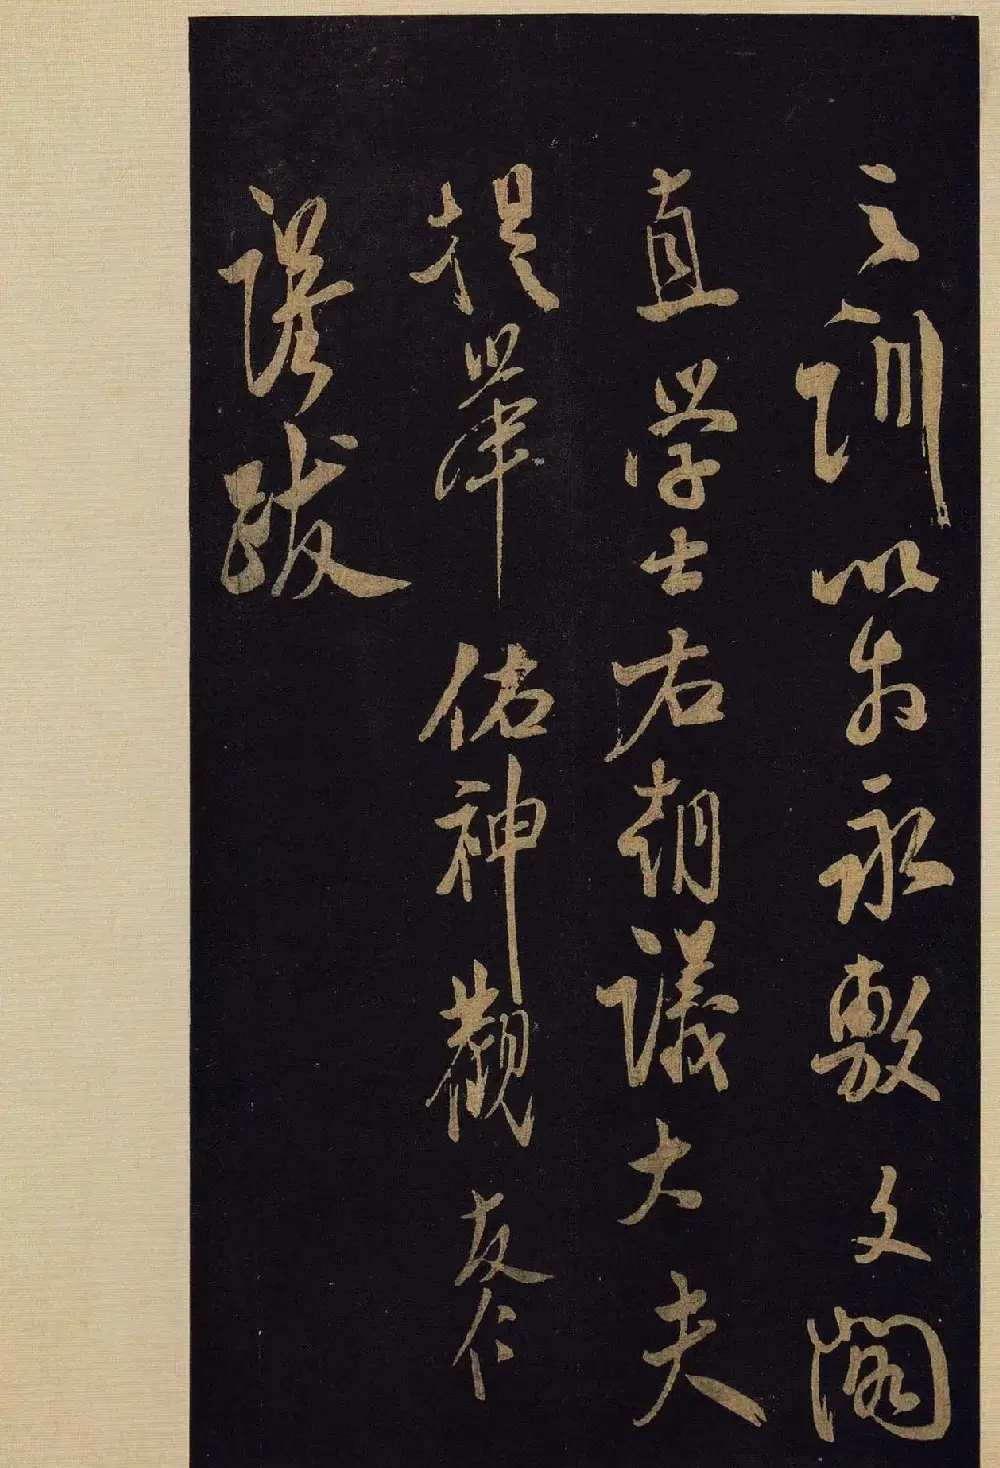 之訓以为永敷文閣
直学士右朝議大夫
提舉佑神觀友仁
謹跋